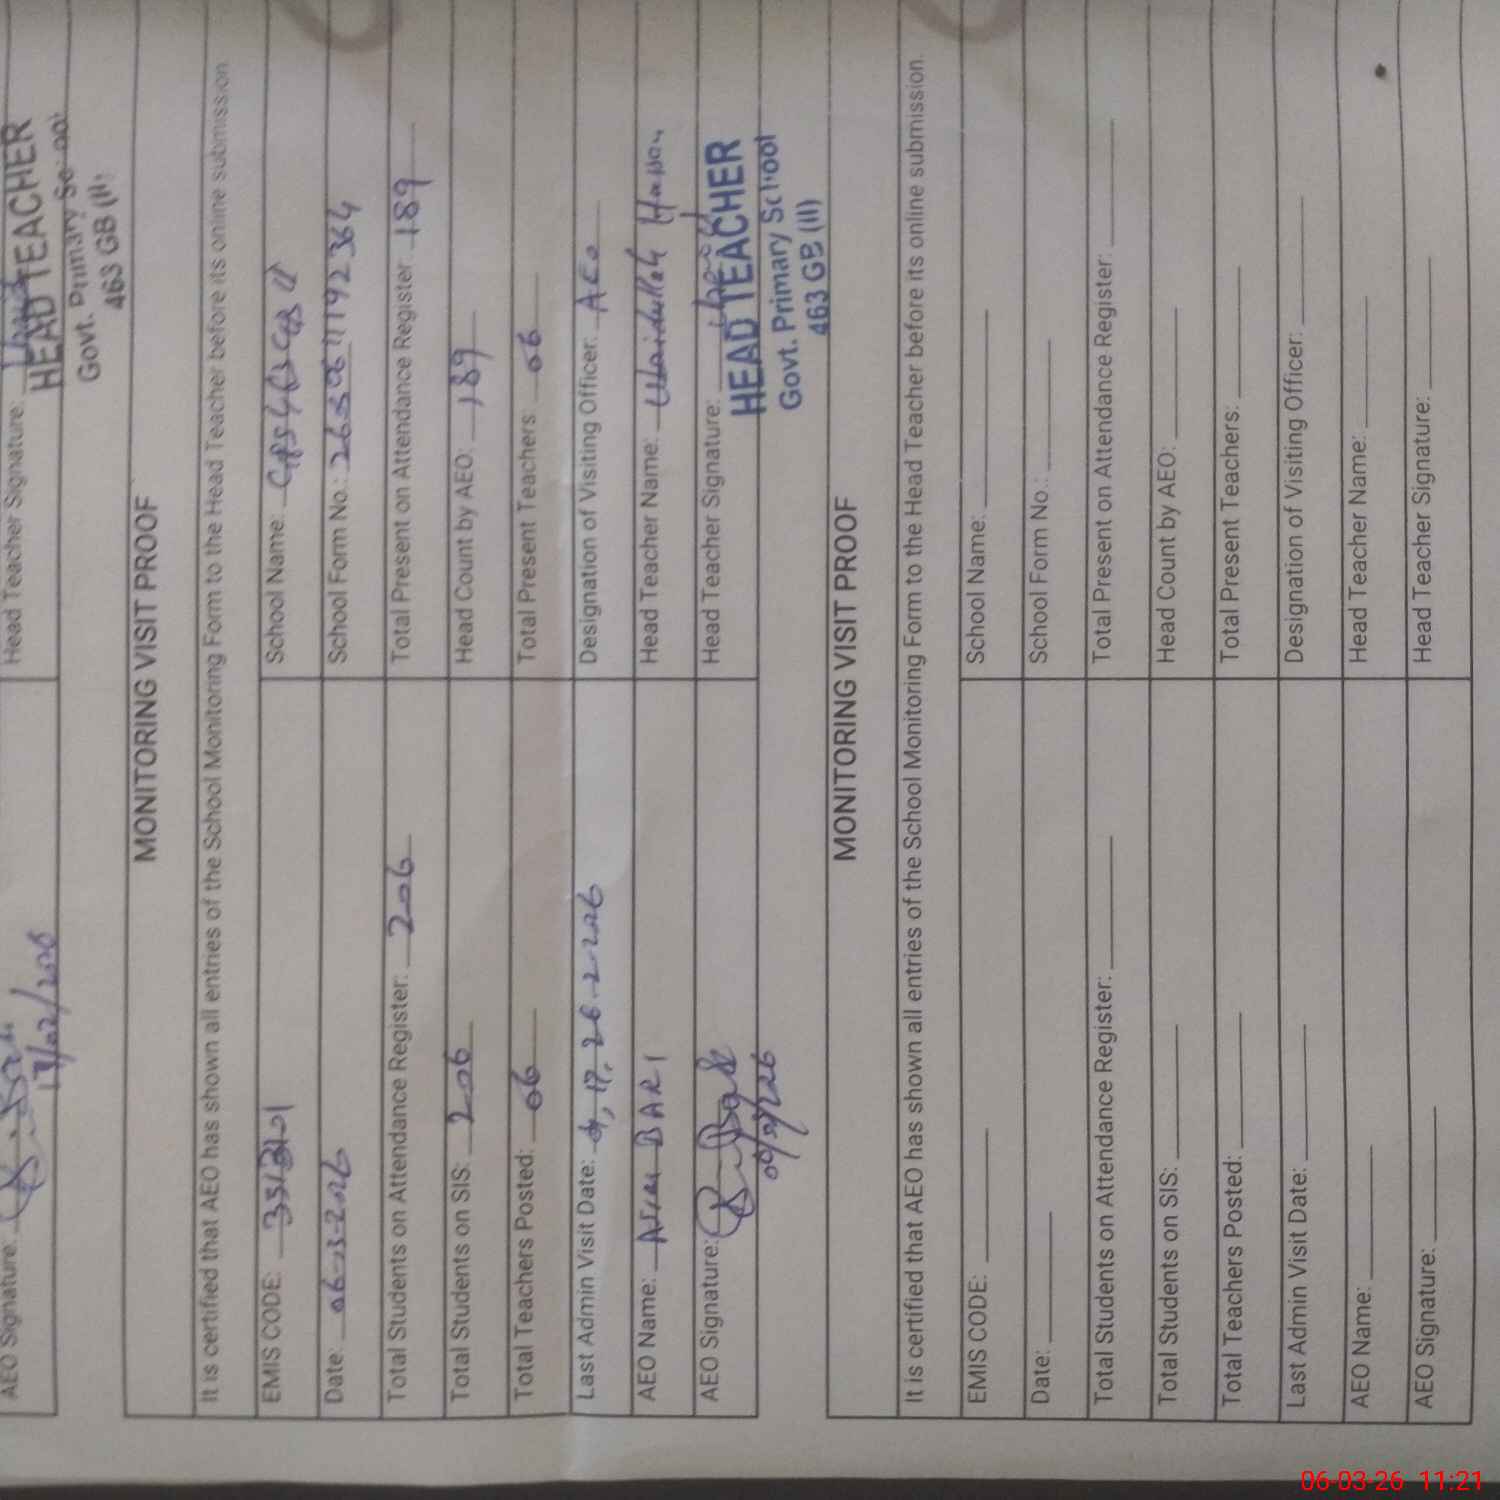 AEO Signature: Head Teacher Signature:
17/02/2026
HEAD TEACHER
Govt. Primary School
463 GB (II)
MONITORING VISIT PROOF
It is certified that AEO has shown all entries of the School Monitoring Form to the Head Teacher before its online submission.
EMIS CODE: School Name: GPS 463 GB II
Date: 06-03-2026 School Form No.:
Total Students on Attendance Register: 206 Total Present on Attendance Register: 189
Total Students on SIS: 206 Head Count by AEO: 189
Total Teachers Posted: 06 Total Present Teachers: 06
Last Admin Visit Date: 17-2-2026 Designation of Visiting Officer: AEO
AEO Name: BARI Head Teacher Name: Hassan
AEO Signature: Head Teacher Signature:
HEAD TEACHER
Govt. Primary School
463 GB (II)
MONITORING VISIT PROOF
It is certified that AEO has shown all entries of the School Monitoring Form to the Head Teacher before its online submission.
EMIS CODE: School Name:
Date: School Form No.:
Total Students on Attendance Register: Total Present on Attendance Register:
Total Students on SIS: Head Count by AEO:
Total Teachers Posted: Total Present Teachers:
Last Admin Visit Date: Designation of Visiting Officer:
AEO Name: Head Teacher Name:
AEO Signature: Head Teacher Signature:
06-03-26 11:21